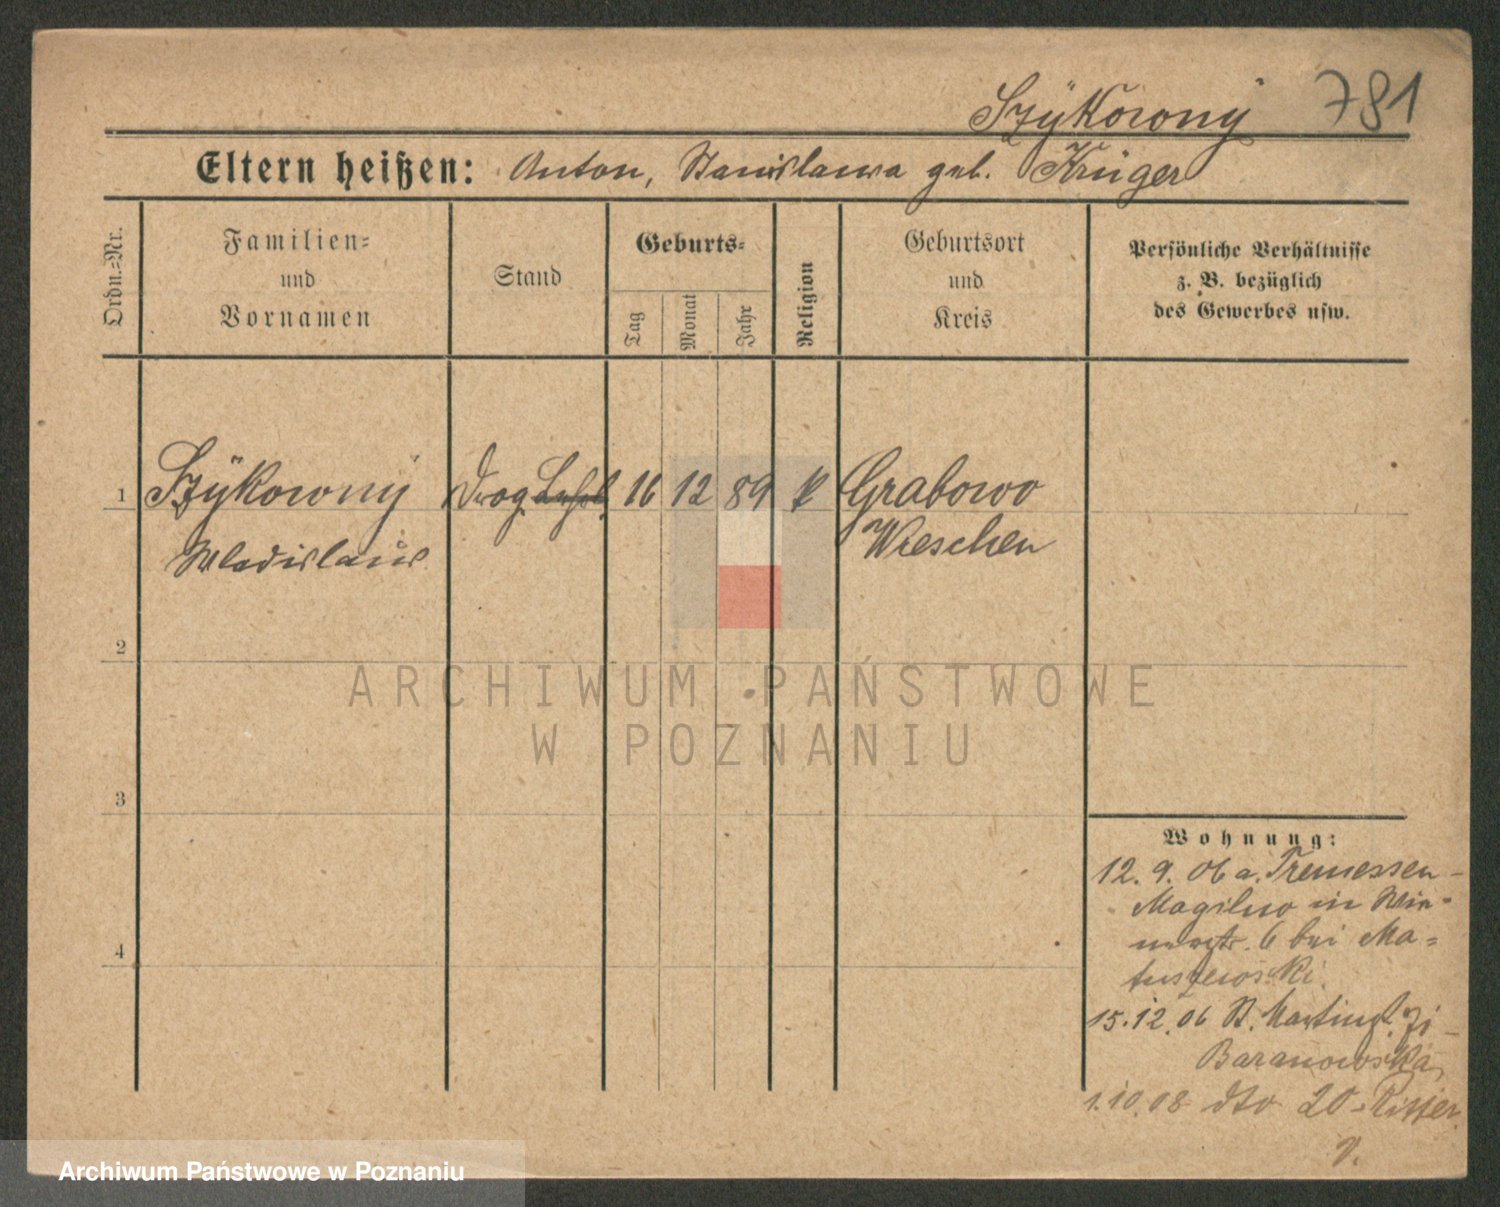 Szÿkowny 781
Eltern heißen: Anton, Stanislawa geb. Krüger
Ordn.-Nr.
Familien-
und
Vornamen
Stand
Geburts-
Tag
Monat
Jahr
Religion
Geburtsort
und
Kreis
Persönliche Verhältnisse
z. B. bezüglich
des Gewerbes usw.
1 Szÿkowny Drog. Lehrl. 16 12 89 k Grabowo
Wladislaus Wreschen
2
3
4
Wohnung:
12. 9. 06 a. Tremessen-
Mogilno in
6 bei Ma-
tuszewski.
15.12.06 St. Martinst.
Baranowska,
1.10.08 dto 20 - Ritter
ARCHIWUM PAŃSTWOWE
W POZNANIU
Archiwum Państwowe w Poznaniu